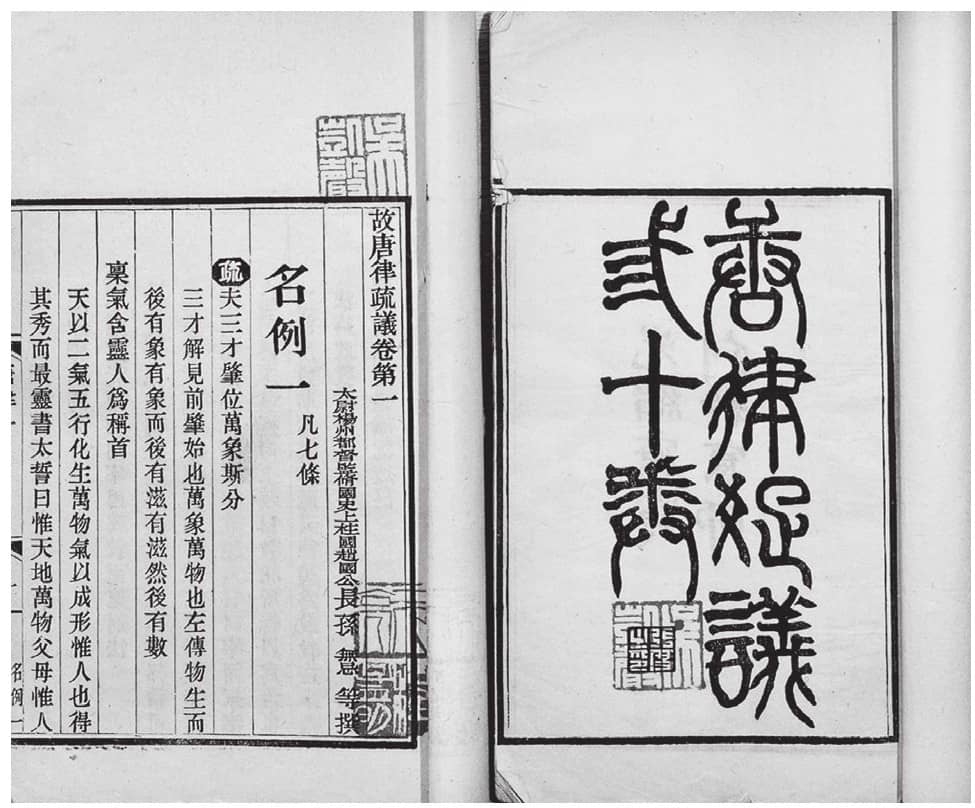 唐律疏議
弎十卷
吳凱聲
故唐律疏議卷第一
太尉揚州都督監修國史上柱國趙國公長孫無忌等撰
名例一 凡七條
疏夫三才肇位萬象斯分
三才解見前肇始也萬象萬物也左傳物生而
後有象有象而後有滋有滋然後有數
稟氣含靈人爲稱首
天以二氣五行化生萬物氣以成形惟人也得
其秀而最靈書太誓曰惟天地萬物父母惟人
名例一